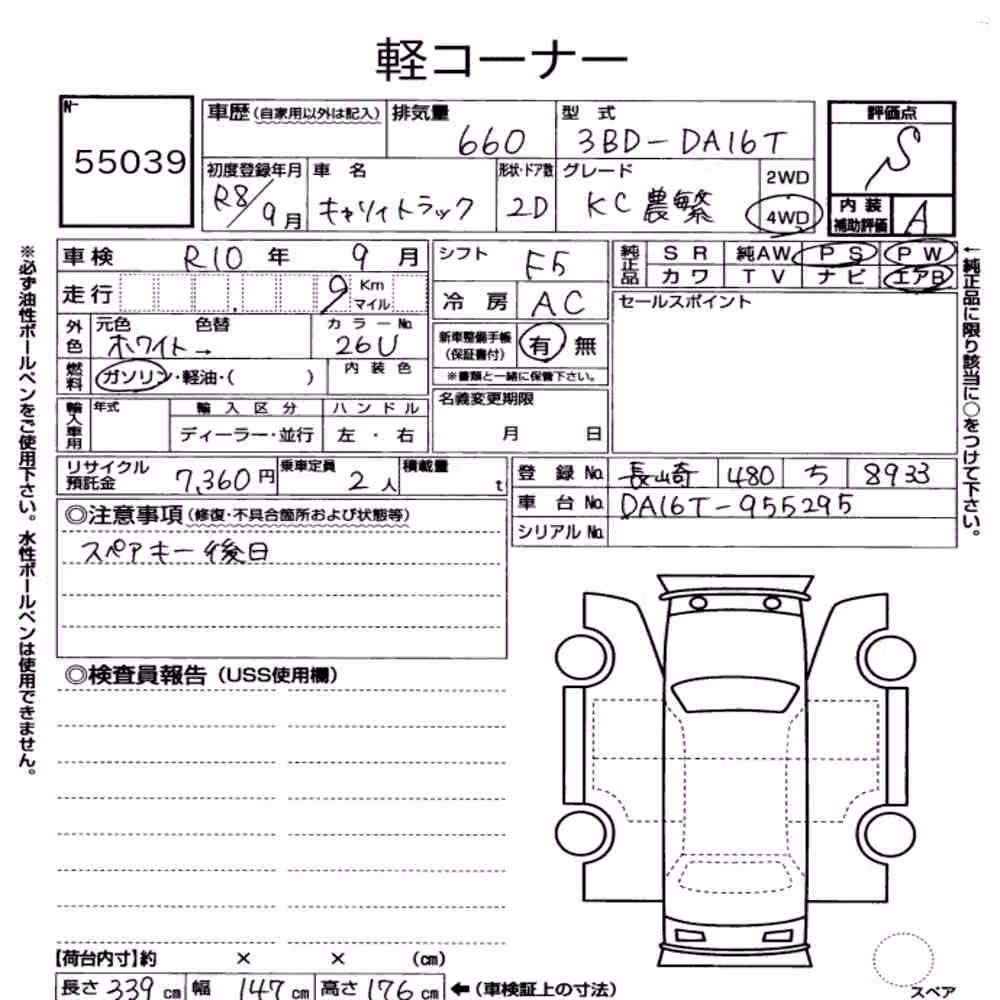 軽コーナー
No 55039
車歴(自家用以外は記入) 排気量 660 型式 3BD-DA16T 評価点 S
初度登録年月 R8/9月 車名 キャリイトラック 形状・ドア数 2D グレード KC農繁 2WD 4WD
内装補助評価 A
車検 R10年 9月 シフト F5 純正品 SR 純AW PS PW
カワ TV ナビ エアB
走行 9 Km マイル 冷房 AC セールスポイント
外色 元色 ホワイト→ 色替 カラーNo. 26U 新車整備手帳(保証書付) 有 無
※書類と一緒に保管下さい。
燃料 ガソリン・軽油・( ) 内装色
輸入車用 年式 輸入区分 ハンドル 名義変更期限
ディーラー・並行 左・右 月 日
リサイクル預託金 7,360円 乗車定員 2人 積載量 t 登録No. 長崎 480 ち 8933
車台No. DA16T-955295
シリアルNo.
◎注意事項(修復・不具合箇所および状態等)
スペアキー後日
◎検査員報告(USS使用欄)
【荷台内寸】約 × × (cm)
長さ 339 cm 幅 147 cm 高さ 176 cm ←(車検証上の寸法)
スペア
※必ず油性ボールペンをご使用下さい。水性ボールペンは使用できません。
←純正品に限り該当に○をつけて下さい。